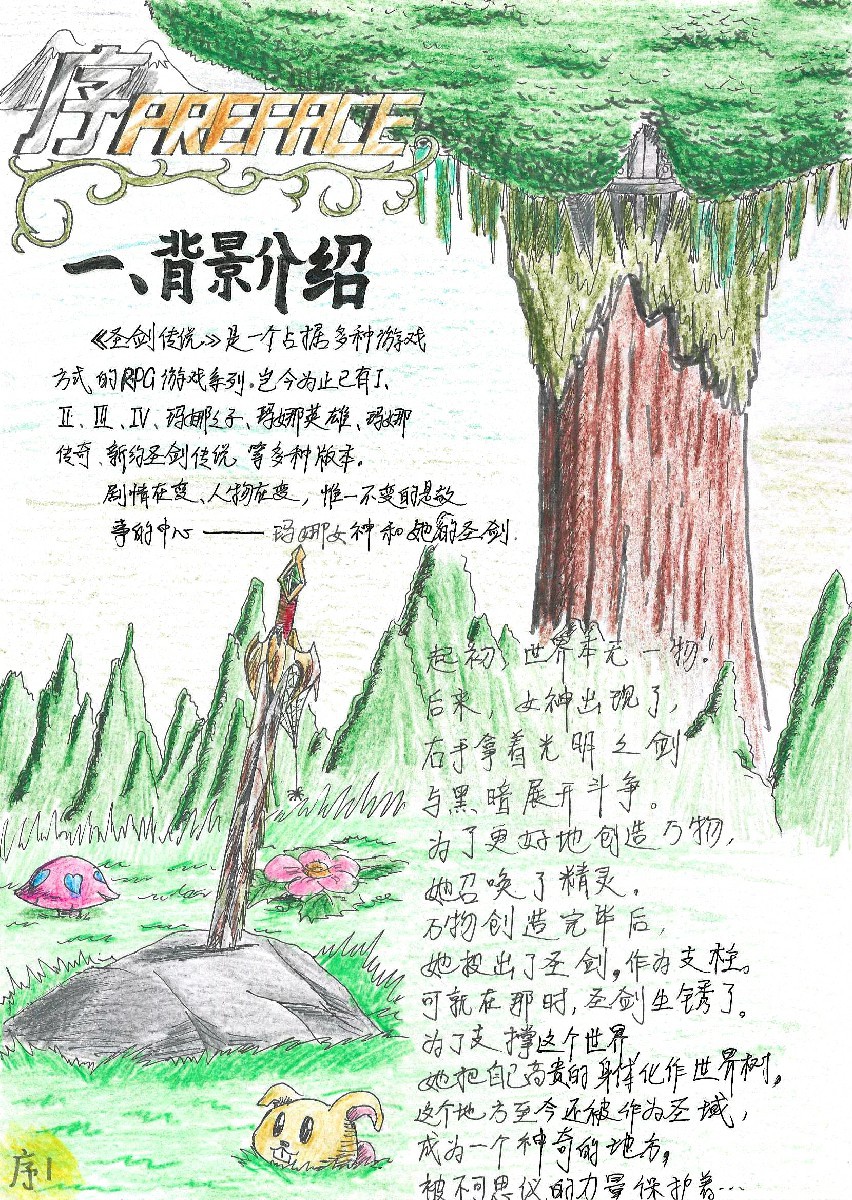 序 PREFACE
一、背景介绍
《圣剑传说》是一个占据多种游戏
方式的RPG游戏系列。迄今为止已有I、
II、III、IV、玛娜之子、玛娜英雄、玛娜
传奇、新约圣剑传说 等多种版本。
剧情在变、人物在变，惟一不变的是故
事的中心——玛娜女神和她的圣剑.
起初，世界本无一物！
后来，女神出现了，
右手拿着光明之剑
与黑暗展开斗争。
为了更好地创造万物，
她召唤了精灵。
万物创造完毕后，
她投出了圣剑，作为支柱。
可就在那时，圣剑生锈了。
为了支撑这个世界
她把自己高贵的身体化作世界树，
这个地方至今还被作为圣域，
成为一个神奇的地方，
被不可思议的力量保护着…
序1